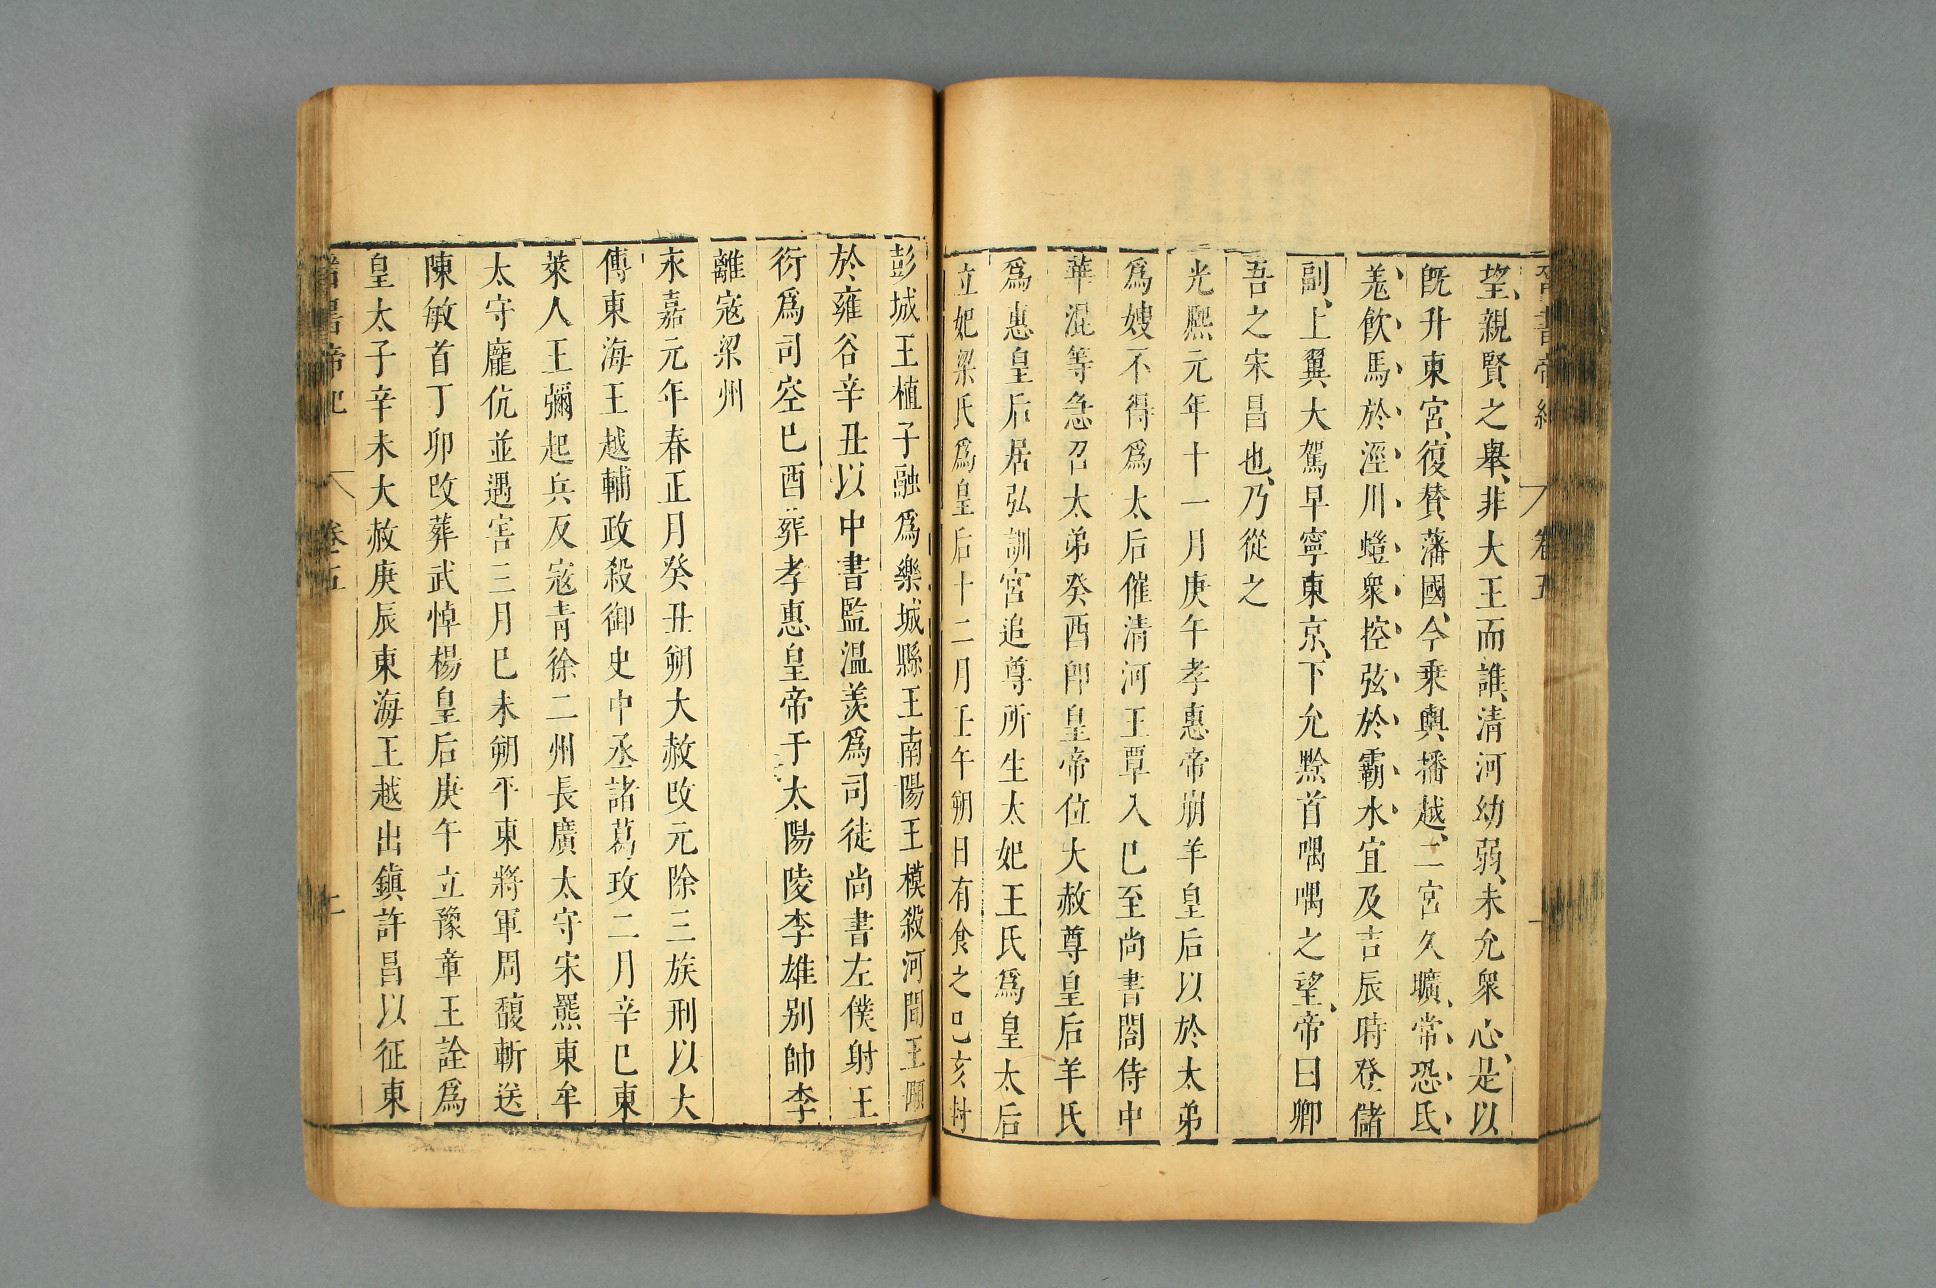 晉書帝紀 卷五 一
望、親賢之舉、非大王而誰、清河幼弱、未允衆心、是以
旣升東宮、復贊藩國、今乘輿播越、二宮久曠、常恐氐
羗飮馬於涇川、螘衆控弦於霸水、宜及吉辰時登儲
副、上翼大駕早寧東京、下允黔首喁喁之望、帝曰卿
吾之宋昌也、乃從之
光熈元年十一月庚午孝惠帝崩羊皇后以於太弟
爲嫂不得爲太后催清河王覃入巳至尚書閤侍中
華混等急召太弟癸酉卽皇帝位大赦尊皇后羊氏
爲惠皇后居弘訓宮追尊所生太妃王氏爲皇太后
立妃梁氏爲皇后十二月壬午朔日有食之巳亥封
彭城王植子融爲樂城縣王南陽王模殺河間王顒
於雍谷辛丑以中書監溫羨爲司徒尚書左僕射王
衍爲司空巳酉葬孝惠皇帝于太陽陵李雄别帥李
離宼梁州
永嘉元年春正月癸丑朔大赦改元除三族刑以太
傅東海王越輔政殺御史中丞諸葛玫二月辛巳東
萊人王彌起兵反宼靑徐二州長廣太守宋羆東牟
太守龐伉並遇害三月巳未朔平東將軍周馥斬送
陳敏首丁卯改葬武悼楊皇后庚午立豫章王詮爲
皇太子辛未大赦庚辰東海王越出鎮許昌以征東
晉書帝紀 卷五 二